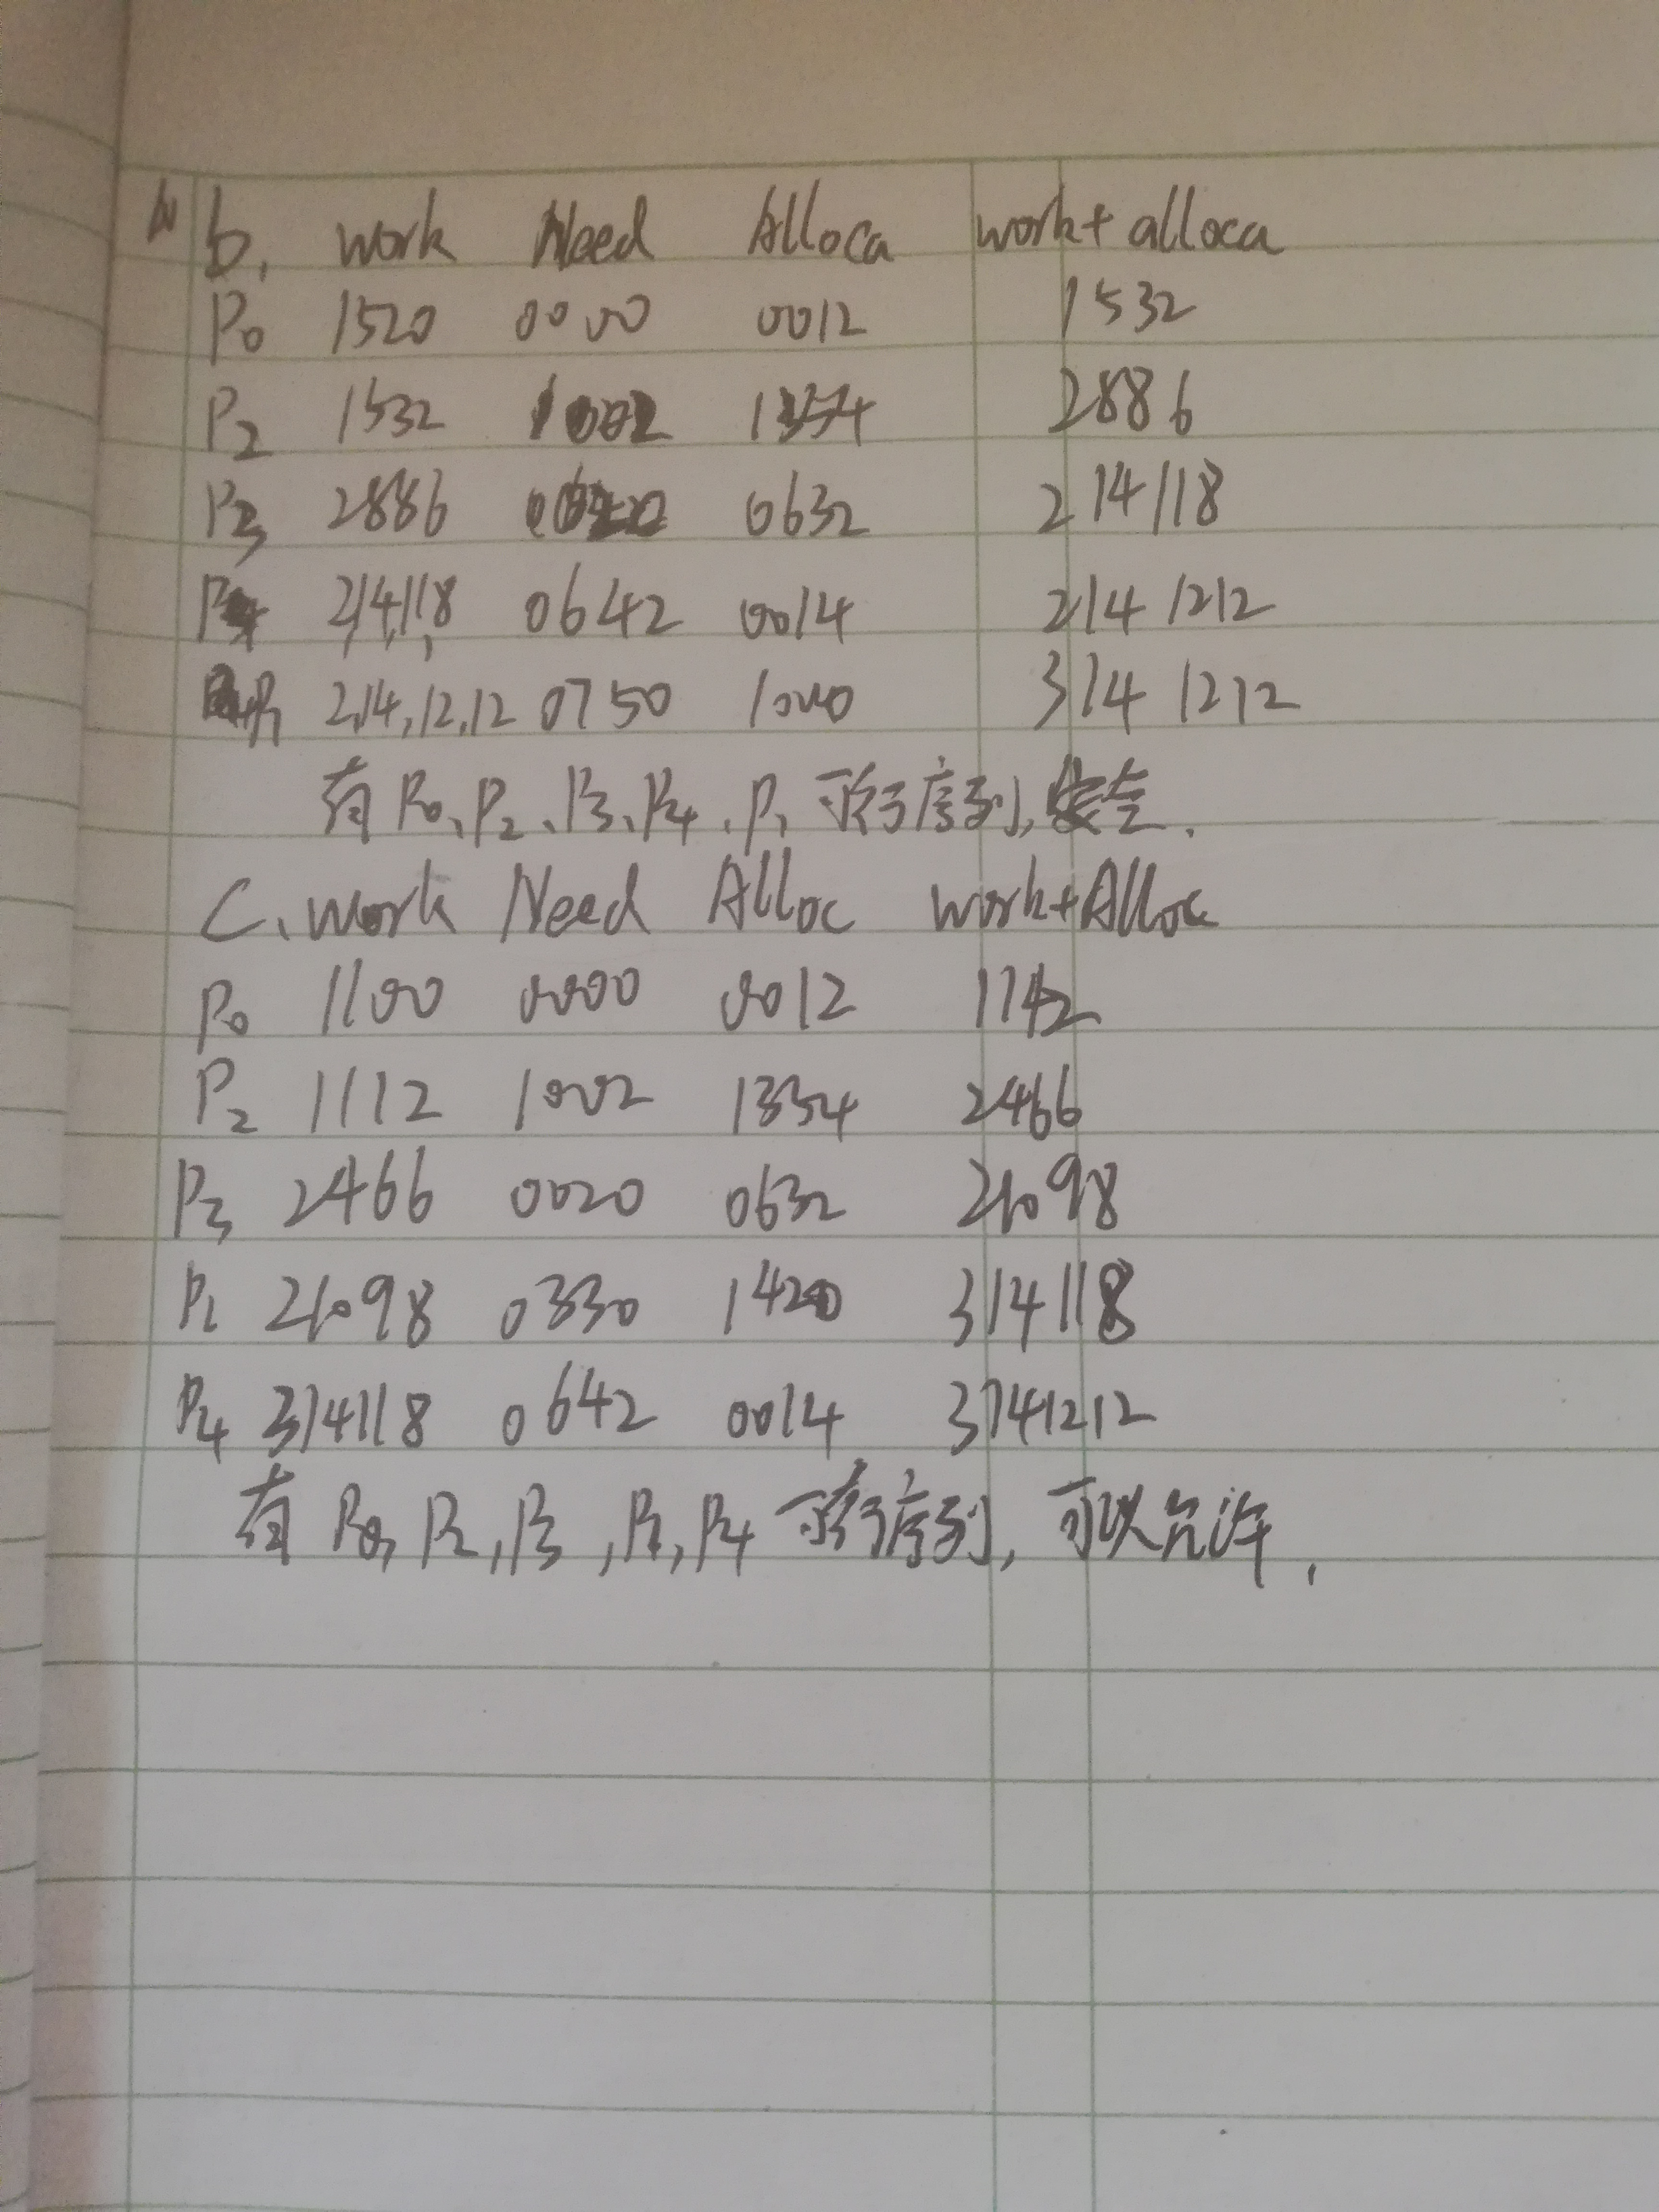 b. work Need Alloca work+ alloca
P0 1520 0000 0012 1532
P2 1532 1002 1354 2886
P3 2886 0020 0632 2 14 11 8
P4 2,14,11,8 0642 0014 2 14 12 12
P1 2,14,12,12 0750 1000 3 14 12 12
有P0、P2、P3、P4、P1可行序列,安全.
C. work Need Alloc work+Alloc
P0 1100 0000 0012 1112
P2 1112 1002 1354 2466
P3 2466 0020 0632 2 10 9 8
P1 2 10 9 8 0330 1420 3 14 11 8
P4 3 14 11 8 0642 0014 3 14 12 12
有P0,P2,P3,P1,P4可行序列,可以允许.